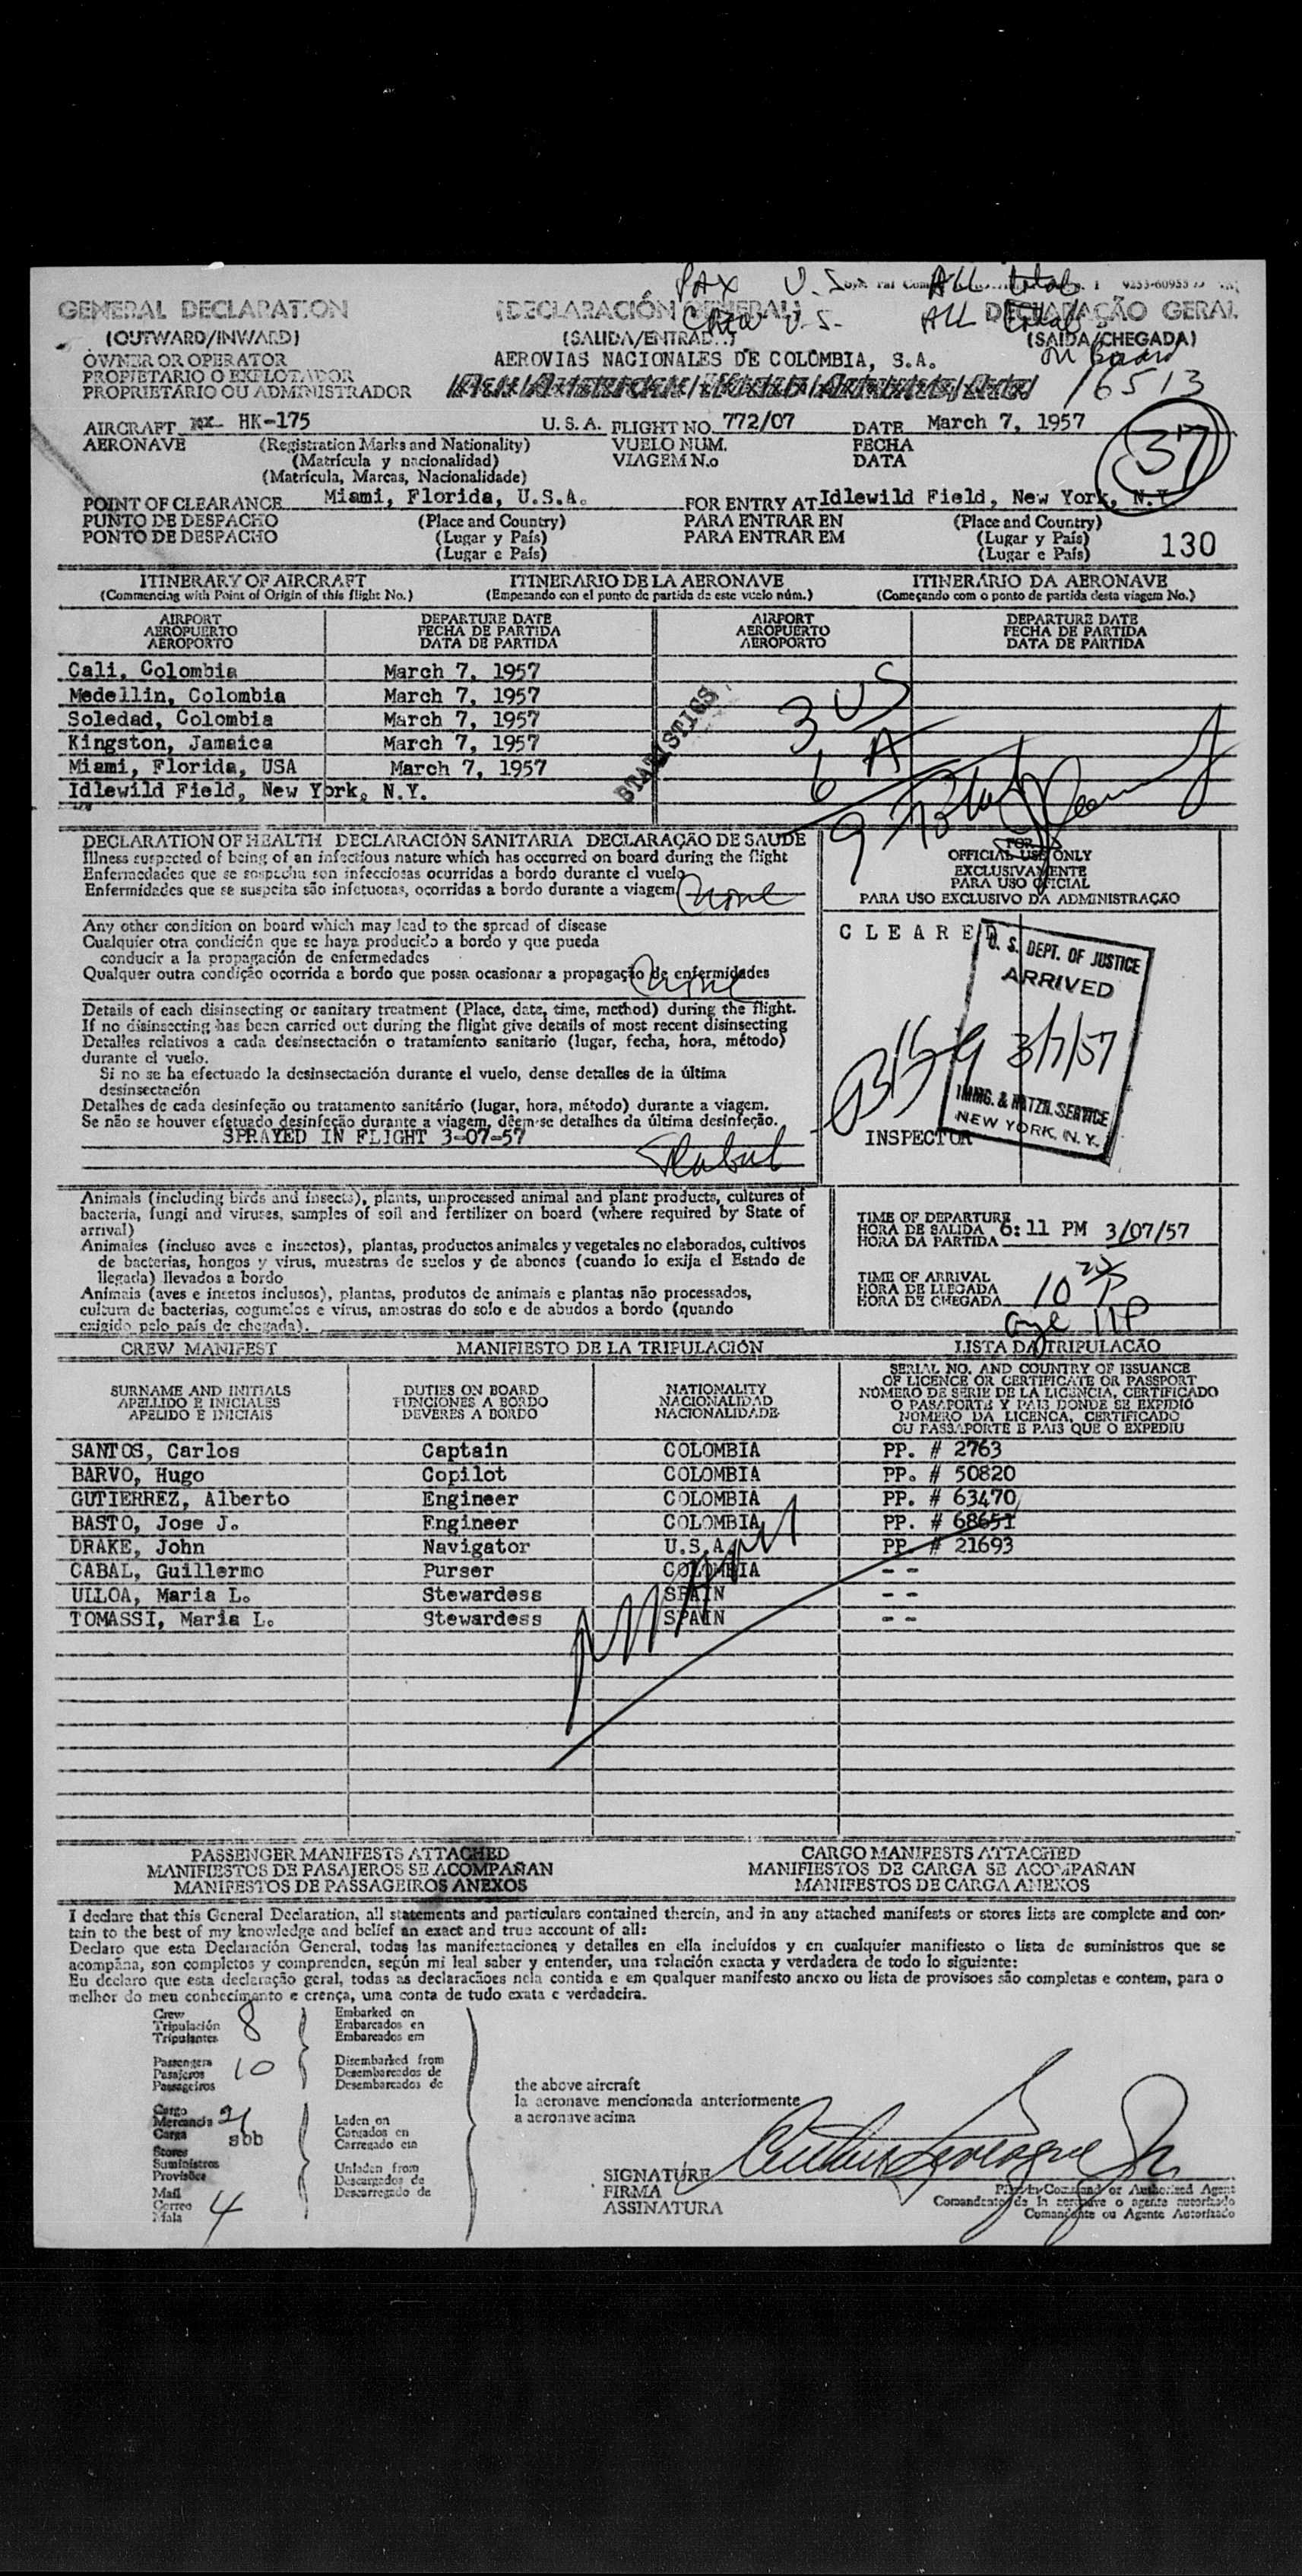 PAX U.S. ALL total
9253-60953
GENERAL DECLARATION (DECLARACIÓN GENERAL) DECLARAÇÃO GERAL
Crew U.S. ALL total
(OUTWARD/INWARD) (SALIDA/ENTRADA) (SAIDA/CHEGADA)
on board
OWNER OR OPERATOR AEROVIAS NACIONALES DE COLOMBIA, S.A.
PROPIETARIO O EXPLOTADOR
PROPRIETÁRIO OU ADMINISTRADOR
16513
AIRCRAFT HK-175 U.S.A. FLIGHT NO. 772/07 DATE March 7, 1957
AERONAVE (Registration Marks and Nationality) VUELO NUM. FECHA
(Matrícula y nacionalidad) VIAGEM N.o DATA
(Matrícula, Marcas, Nacionalidade)
37
POINT OF CLEARANCE Miami, Florida, U.S.A. FOR ENTRY AT Idlewild Field, New York, N.Y.
PUNTO DE DESPACHO (Place and Country) PARA ENTRAR EN (Place and Country)
PONTO DE DESPACHO (Lugar y País) PARA ENTRAR EM (Lugar y País)
(Lugar e País) (Lugar e País) 130
ITINERARY OF AIRCRAFT ITINERARIO DE LA AERONAVE ITINERÁRIO DA AERONAVE
(Commencing with Point of Origin of this flight No.) (Empezando con el punto de partida de este vuelo núm.) (Começando com o ponto de partida desta viagem No.)
AIRPORT DEPARTURE DATE AIRPORT DEPARTURE DATE
AEROPUERTO FECHA DE PARTIDA AEROPUERTO FECHA DE PARTIDA
AEROPORTO DATA DE PARTIDA AEROPORTO DATA DE PARTIDA
Cali, Colombia March 7, 1957
Medellin, Colombia March 7, 1957
Soledad, Colombia March 7, 1957
Kingston, Jamaica March 7, 1957
Miami, Florida, USA March 7, 1957
Idlewild Field, New York, N.Y.
STATISTICS
3 US
6 A
9
DECLARATION OF HEALTH DECLARACIÓN SANITARIA DECLARAÇÃO DE SAUDE
Illness suspected of being of an infectious nature which has occurred on board during the flight
Enfermedades que se sospecha son infecciosas ocurridas a bordo durante el vuelo
Enfermidades que se suspeita são infetuosas, ocorridas a bordo durante a viagem none
FOR
OFFICIAL USE ONLY
EXCLUSIVAMENTE
PARA USO OFICIAL
PARA USO EXCLUSIVO DA ADMINISTRAÇÃO
Any other condition on board which may lead to the spread of disease
Cualquier otra condición que se haya producido a bordo y que pueda
conducir a la propagación de enfermedades
Qualquer outra condição ocorrida a bordo que possa ocasionar a propagação de enfermidades
none
CLEARED
U. S. DEPT. OF JUSTICE
ARRIVED
3/7/57
IMMG. & NATZN. SERVICE
NEW YORK, N. Y.
INSPECTOR
Details of each disinsecting or sanitary treatment (Place, date, time, method) during the flight.
If no disinsecting has been carried out during the flight give details of most recent disinsecting
Detalles relativos a cada desinsectación o tratamiento sanitario (lugar, fecha, hora, método)
durante el vuelo.
Si no se ha efectuado la desinsectación durante el vuelo, dense detalles de la última
desinsectación
Detalhes de cada desinfeção ou tratamento sanitário (lugar, hora, método) durante a viagem.
Se não se houver efetuado desinfeção durante a viagem, dêem-se detalhes da última desinfeção.
SPRAYED IN FLIGHT 3-07-57
Animals (including birds and insects), plants, unprocessed animal and plant products, cultures of
bacteria, fungi and viruses, samples of soil and fertilizer on board (where required by State of
arrival)
Animales (incluso aves e insectos), plantas, productos animales y vegetales no elaborados, cultivos
de bacterias, hongos y virus, muestras de suelos y de abonos (cuando lo exija el Estado de
llegada) llevados a bordo
Animais (aves e insetos inclusos), plantas, produtos de animais e plantas não processados,
cultura de bacterias, cogumelos e virus, amostras do solo e de abudos a bordo (quando
exigido pelo país de chegada).
TIME OF DEPARTURE
HORA DE SALIDA 6:11 PM 3/07/57
HORA DA PARTIDA
TIME OF ARRIVAL
HORA DE LLEGADA
HORA DE CHEGADA 10
11P
CREW MANIFEST MANIFIESTO DE LA TRIPULACIÓN LISTA DA TRIPULACAO
SURNAME AND INITIALS DUTIES ON BOARD NATIONALITY SERIAL NO. AND COUNTRY OF ISSUANCE
APELLIDO E INICIALES FUNCIONES A BORDO NACIONALIDAD OF LICENCE OR CERTIFICATE OR PASSPORT
APELIDO E INICIAIS DEVERES A BORDO NACIONALIDADE NÚMERO DE SERIE DE LA LICENCIA, CERTIFICADO
O PASAPORTE Y PAIS DONDE SE EXPIDIÓ
NÚMERO DA LICENCA, CERTIFICADO
OU PASSAPORTE E PAIS QUE O EXPEDIU
SANTOS, Carlos Captain COLOMBIA PP. # 2763
BARVO, Hugo Copilot COLOMBIA PP. # 50820
GUTIERREZ, Alberto Engineer COLOMBIA PP. # 63470
BASTO, Jose J. Engineer COLOMBIA PP. # 68651
DRAKE, John Navigator U.S.A. PP. # 21693
CABAL, Guillermo Purser COLOMBIA - -
ULLOA, Maria L. Stewardess SPAIN - -
TOMASSI, Maria L. Stewardess SPAIN - -
PASSENGER MANIFESTS ATTACHED CARGO MANIFESTS ATTACHED
MANIFIESTOS DE PASAJEROS SE ACOMPAÑAN MANIFIESTOS DE CARGA SE ACOMPAÑAN
MANIFESTOS DE PASSAGEIROS ANEXOS MANIFESTOS DE CARGA ANEXOS
I declare that this General Declaration, all statements and particulars contained therein, and in any attached manifests or stores lists are complete and con-
tain to the best of my knowledge and belief an exact and true account of all:
Declaro que esta Declaración General, todas las manifestaciones y detalles en ella incluídos y en cualquier manifiesto o lista de suministros que se
acompaña, son completos y comprenden, según mi leal saber y entender, una relación exacta y verdadera de todo lo siguiente:
Eu declaro que esta declaração geral, todas as declaracãoes nela contida e em qualquer manifesto anexo ou lista de provisoes são completas e contem, para o
melhor do meu conhecimento e crença, uma conta de tudo exata e verdadeira.
Crew Embarked on
Tripulación 8 Embarcados en
Tripulantes Embarcados em
Passengers Disembarked from
Pasajeros 10 Desembarcados de
Passageiros Desembarcados de
the above aircraft
la aeronave mencionada anteriormente
a aeronave acima
Cargo
Mercancia 21 Laden on
Carga sbb Cargados en
Stores Carregado em
Suministros Unladen from
Provisões Descargados de
Mail Descarregado de
Correo 4
Mala
SIGNATURE
FIRMA
ASSINATURA
Pilot in Command or Authorized Agent
Comandante de la aeronave o agente autorizado
Comandante ou Agente Autorizado